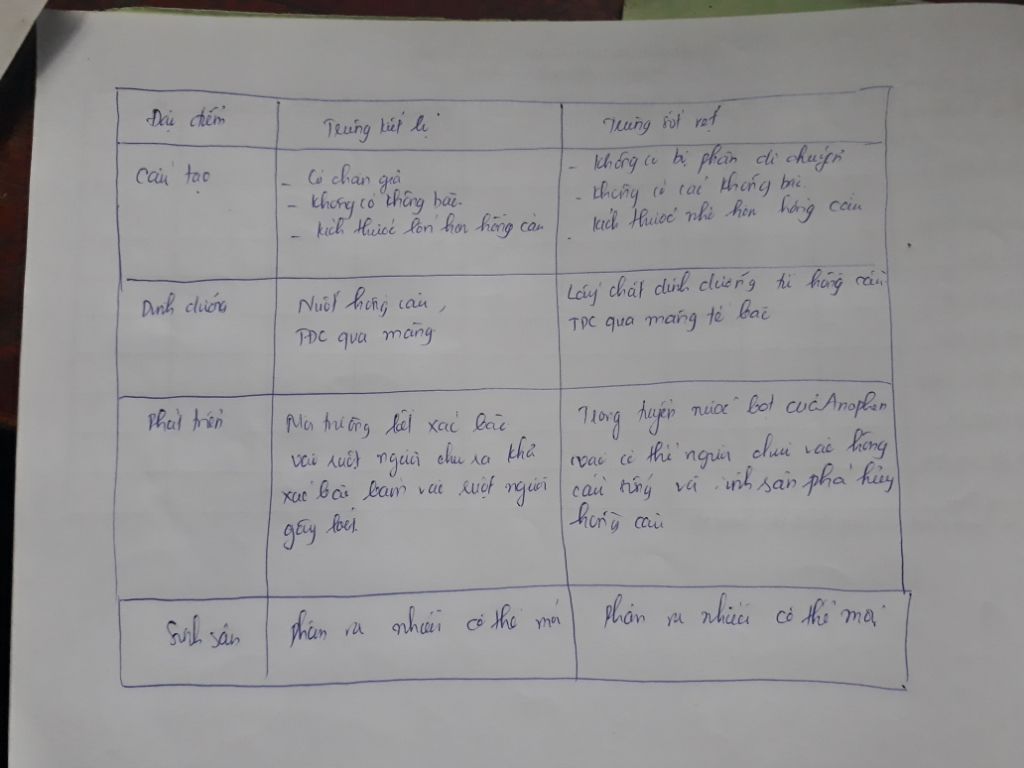 Đặc điểm
Trùng kiết lị
Trùng sốt rét
Cấu tạo
- Có chân giả
- Không có không bào.
- kích thước lớn hơn hồng cầu
- Không có bộ phận di chuyển
- Không có các không bào.
kích thước nhỏ hơn hồng cầu
Dinh dưỡng
Nuốt hồng cầu,
TĐC qua màng
Lấy chất dinh dưỡng từ hồng cầu
TĐC qua màng tế bào
Phát triển
trường kết xác bào
vào ruột người chui ra khỏi
xác bào bám vào ruột người
gây loét
Trong tuyến nước bọt của Anophen
vào cơ thể người chui vào hồng
cầu sống và sinh sản phá hủy
hồng cầu
Sinh sản
phân ra nhiều cơ thể mới
phân ra nhiều cơ thể mới